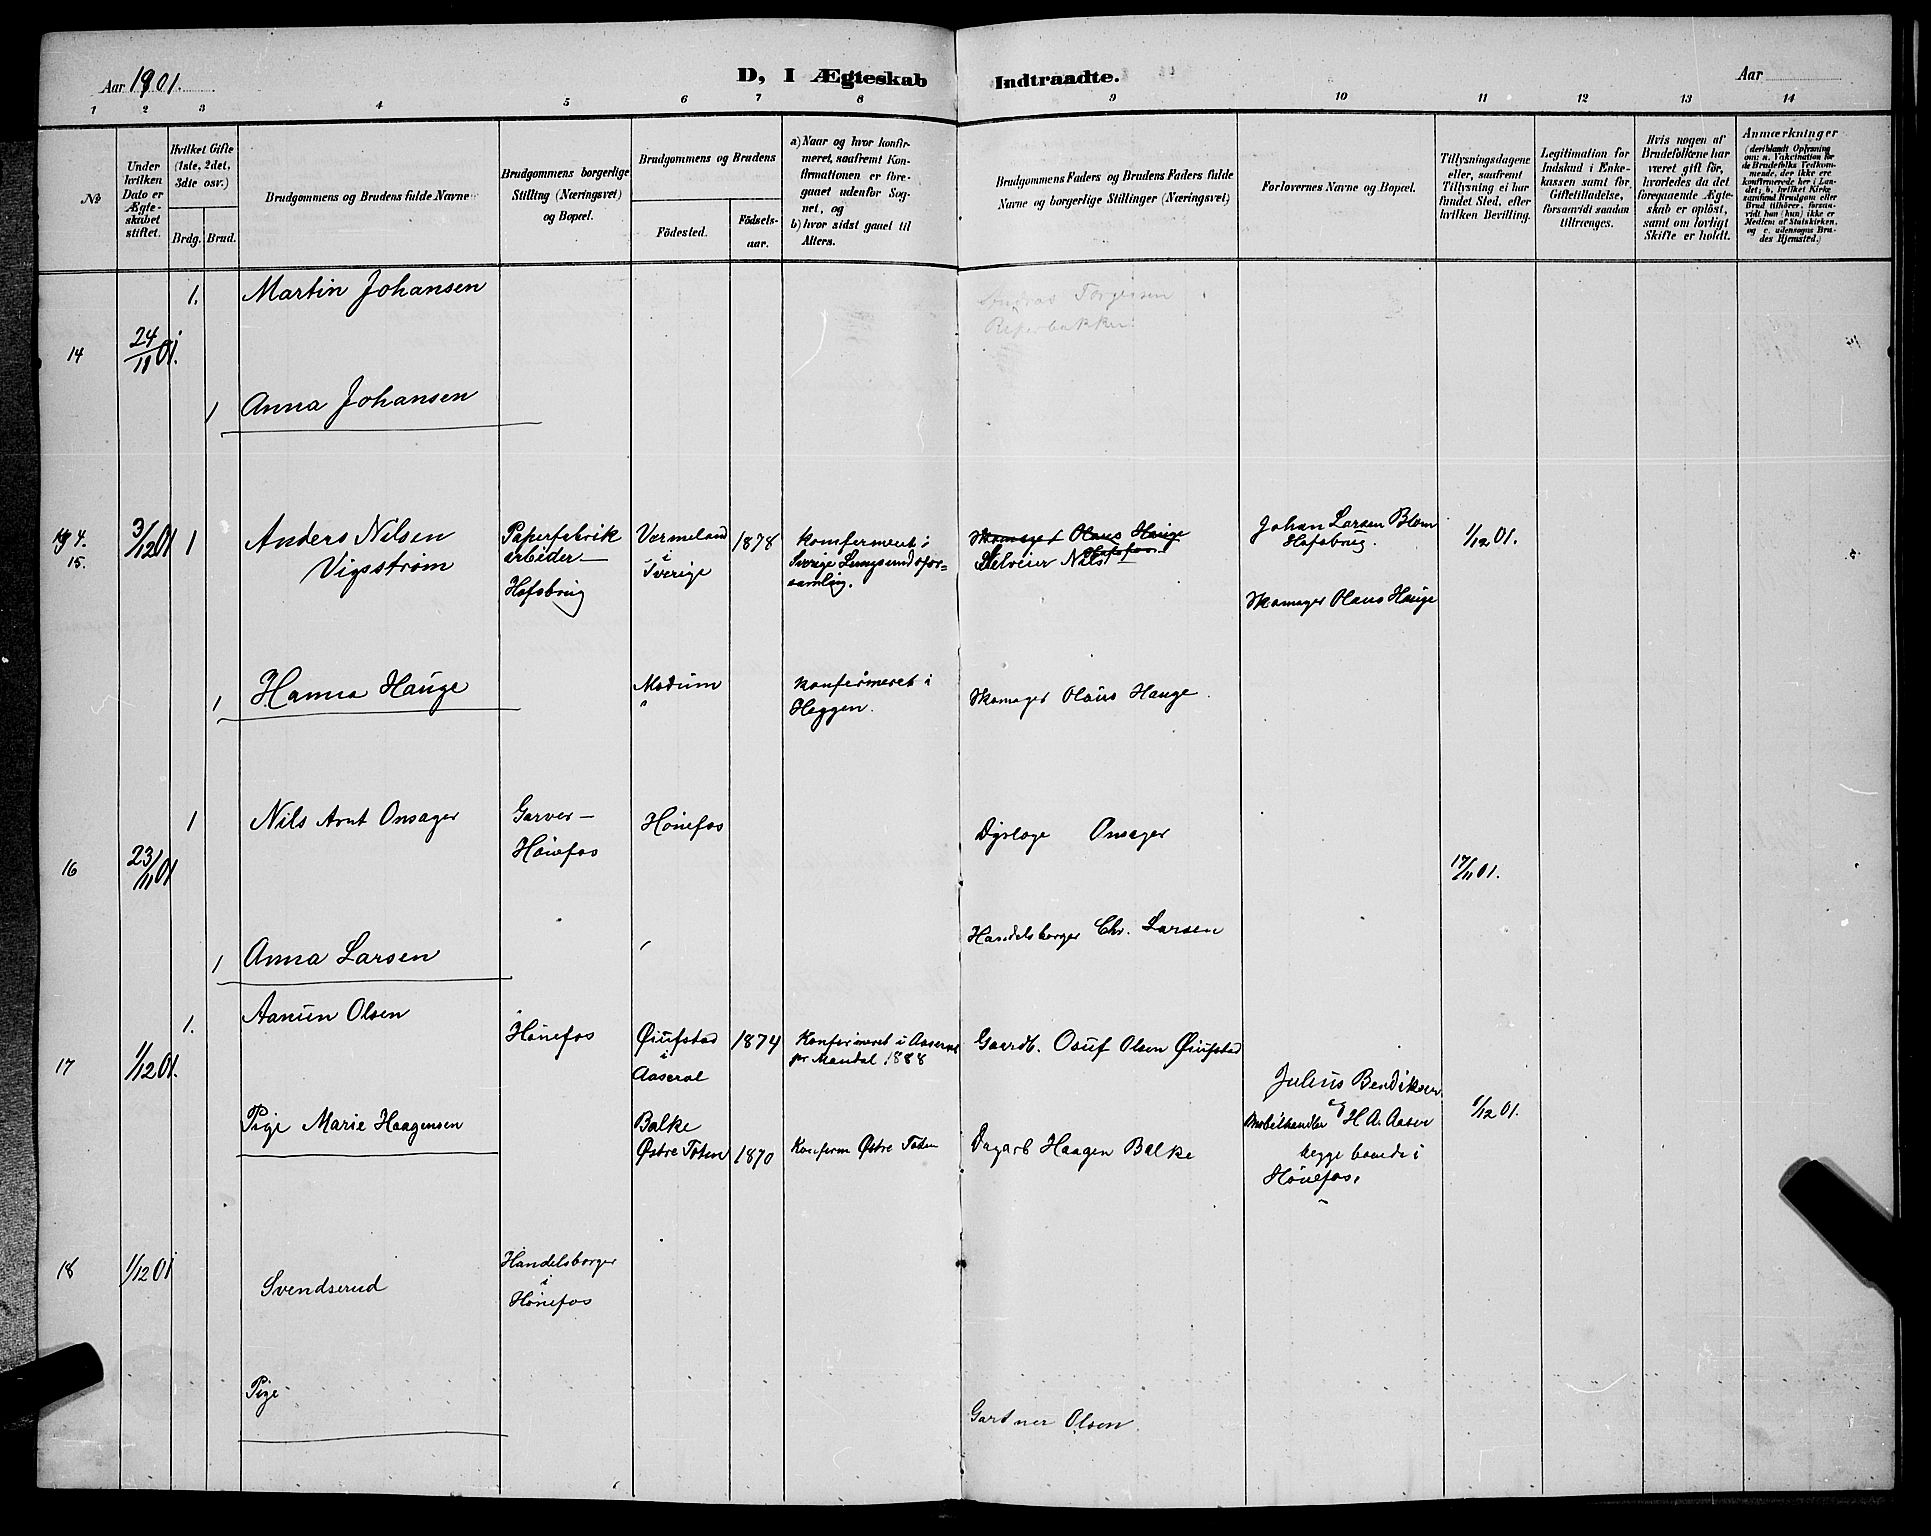 Aar 1901.
D, I Ægteskab Indtraadte.
Aar
1 2 3 4 5 6 7 8 9 10 11 12 13 14
No
Under hvilken Dato er Ægteskabet stiftet.
Hvilket Gifte (1ste, 2det, 3dte osv.)
Brdg. Brud.
Brudgommens og Brudens fulde Navne
Brudgommens borgerlige Stilling (Næringsvei) og Bopæl.
Brudgommens og Brudens
Födested.
Födselsaar.
a) Naar og hvor konfirmeret, saafremt Konfirmationen er foregaaet udenfor Sognet, og
b) hvor sidst gaaet til Alters.
Brudgommens Faders og Brudens Faders fulde Navne og borgerlige Stillinger (Næringsvei)
Forlovernes Navne og Bopæl.
Tillysningsdagene eller, saafremt Tillysning ei har fundet Sted, efter hvilken Bevilling.
Legitimation for Indskud i Enkekassen samt for Giftetilladelse, forsaavidt saadan tiltrænges.
Hvis nogen af Brudefolkene har været gift för, hvorledes da det foregaaende Ægteskab er oplöst, samt om lovligt Skifte er holdt.
Anmærkninger
(deriblandt Oplysning om: a. Vakcination for de Brudefolks Vedkommende, der ikke ere konfirmerede her i Landet; b. hvilket Kirkesamfund Brudgom eller Brud tilhörer, forsaavidt han (hun) ikke er Medlem af Statskirken, og c. udensogns Brudes Hjemsted.)
14
24/11 01.
1. Martin Johansen
Torgersen
1 Anna Johansen
15.
3/12 01
1
Anders Nilsen
Vigsstrøm
Paperfabrik
arbeider—
Hofsbrug
Vermeland
i
Sverige
1878
konfermeret i
Sverige Lungsundsfor=
samling.
Skomager Olaus Hauge
Hofsfos.
Nils
Johan Larsen Blom
Hofsbrug.
Skomager Olaus Hauge
1/12 01.
1 Hanna Hauge
Modum
konfirmeret i
Heggen.
Skomager Olaus Hauge.
16
23/11 01
1
Nils Arnt Onsager
Garver—
Hønefos
Hønefos
Dyrlæge Onsager
17/11 01.
1 Anna Larsen
Handelsborger Chr. Larsen
17
1/12 01.
1.
Aanun Olsen
Hønefos
Øiufstad
i
Aaseral
1874
Konfirmeret i Aaseral
pr Mandal 1888
Gaardb. Olsen Øiufstad
Julius Bendiksen
og
Møbelhandler H A. Aasen
begge boende i
Hønefos.
1/12 01.
Pige Marie Haagensen
Balke
Østre Toten
1870
Konferm Østre Toten
Dagarb Haagen Balke
18
1/12 01
Svendserud
Handelsborger
i
Hønefos
Pige
Gartner Olsen